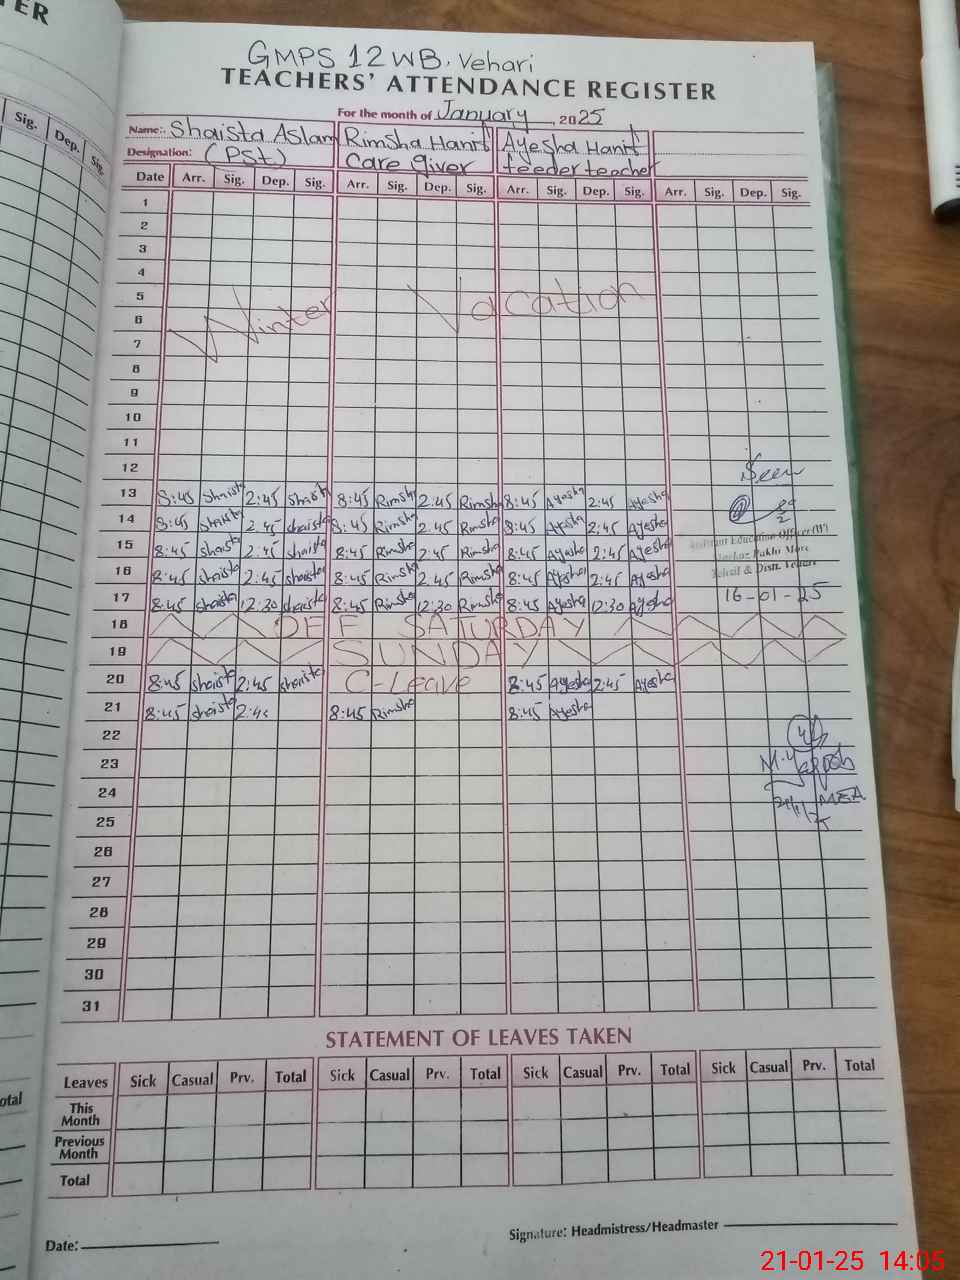 TER
Sig. Dep. Sig.
GMPS 12WB, Vehari
TEACHERS' ATTENDANCE REGISTER
For the month of January, 2025
Name: Shaista Aslam Rimsha Hanif Ayesha Hanif
Designation: (PST) Care giver feeder teacher
Date Arr. Sig. Dep. Sig. Arr. Sig. Dep. Sig. Arr. Sig. Dep. Sig. Arr. Sig. Dep. Sig.
1
2
3
4
5
Winter Vacation
6
7
8
9
10
11
12
Seen
13 8:45 Shaista 2:45 Shaista 8:45 Rimsha 2:45 Rimsha 8:45 Ayesha 2:45 Ayesha
14 8:45 Shaista 2:45 Shaista 8:45 Rimsha 2:45 Rimsha 8:45 Ayesha 2:45 Ayesha
Assistant Education Officer (W)
15 8:45 Shaista 2:45 Shaista 8:45 Rimsha 2:45 Rimsha 8:45 Ayesha 2:45 Ayesha
Markaz Pakhi More
16 8:45 Shaista 2:45 Shaista 8:45 Rimsha 2:45 Rimsha 8:45 Ayesha 2:45 Ayesha
Tehsil & Distt. Vehari
17 8:45 Shaista 12:30 Shaista 8:45 Rimsha 12:30 Rimsha 8:45 Ayesha 12:30 Ayesha
16-01-25
18 OFF SATURDAY
19 SUNDAY
20 8:45 Shaista 2:45 Shaista C-Leave 8:45 Ayesha 2:45 Ayesha
21 8:45 Shaista 2:45 8:45 Rimsha 8:45 Ayesha
22
23
24
MEA
25
26
27
28
29
30
31
STATEMENT OF LEAVES TAKEN
Leaves Sick Casual Prv. Total Sick Casual Prv. Total Sick Casual Prv. Total Sick Casual Prv. Total
This Month
Previous Month
Total
otal
Date:
Signature: Headmistress/Headmaster
21-01-25 14:05